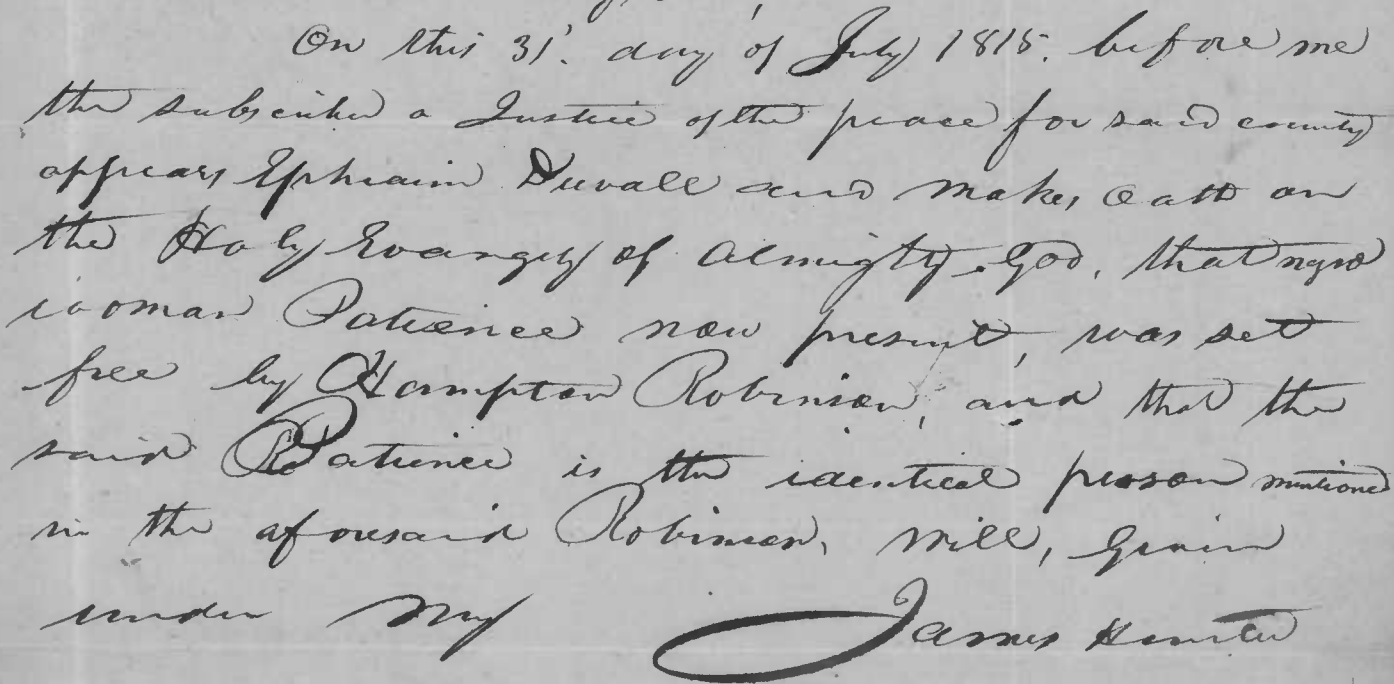 On this 31' day of July 1815. before me
the subscriber a Justice of the peace for said county
appears Ephraim Duvall and makes Oath on
the Holy Evangely of Almighty God, that negro
woman Patience now present, was set
free by Hampton Robinson, and that the
said Patience is the identical person mentioned
in the aforesaid Robinson, will, Given
under my James Hunter